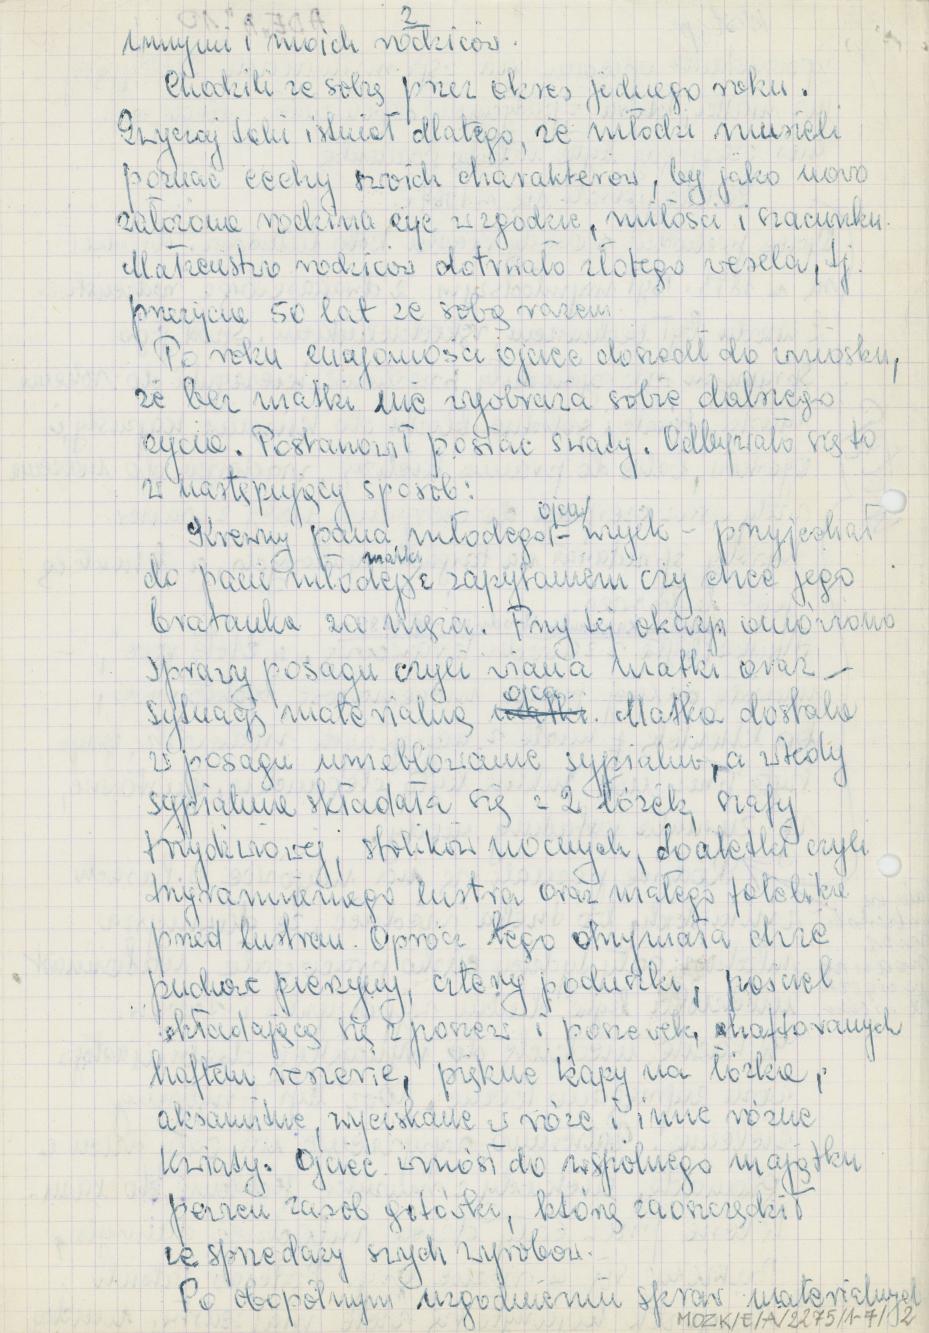 2
innymi i moich rodziców.
Chodzili ze sobą przez okres jednego roku.
Zwyczaj taki istniał dlatego, że młodzi musieli
poznać cechy swoich charakterów, by jako nowo
założona rodzina żyć w zgodzie, miłości i szacunku.
Małżeństwo rodziców dotrwało złotego wesela, tj.
przeżycia 50 lat ze sobą razem
Po roku znajomości ojciec doszedł do wniosku,
że bez matki nie wyobraża sobie dalszego
życia. Postanowił posłać swaty. Odbywało się to
w następujący sposób:
Krewny pana młodego ojca - wujek - przyjechał
do pani młodej matki z zapytaniem czy chce jego
bratanka za męża. Przy tej okazji omówiono
sprawy posagu czyli wiana matki oraz -
sytuację materialną matki ojca. Matka dostała
w posagu umeblowanie sypialni, a wtedy
sypialnia składała się z 2 łóżek, szafy
trzydrzwiowej, stolików nocnych, toaletki czyli
trzyramiennego lustra oraz małego fotelika
przed lustrem. Oprócz tego otrzymała dwie
puchowe pierzyny, cztery poduszki, pościel
składającą się z poszew i poszewek, haftowanych
haftem reszelie, piękne kapy na łóżka,
aksamitne, wyciskane w róże i inne różne
kwiaty. Ojciec wniósł do wspólnego majątku
pewien zasób gotówki, którą zaoszczędził
ze sprzedaży swych wyrobów.
Po obopólnym uzgodnieniu spraw materialnych
MOZK/E/A/2275/1-7/2